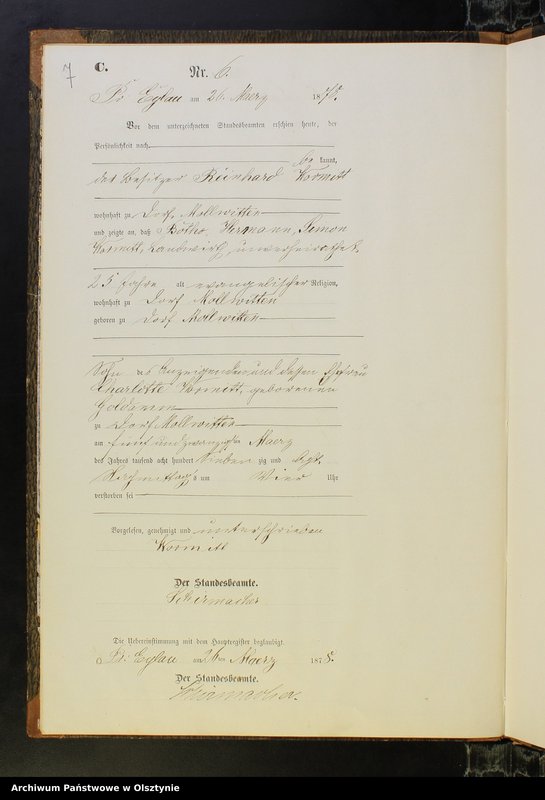 7
C.
Nr. 6.
Pr. Eylau am 26. Maerz 1878.
Vor dem unterzeichneten Standesbeamten erschien heute, der
Persönlichkeit nach
be kannt,
der Besitzer Reinhard Wormitt
wohnhaft zu Dorf Mollwitten
und zeigte an, daß Botho, Hermann, Simon
Wormitt, Landwirth, unverheirathet,
25 Jahre alt evangelischer Religion,
wohnhaft zu Dorf Mollwitten
geboren zu Dorf Mollwitten
Sohn des Anzeigenden und dessen Ehefrau
Charlotte Wormitt, geborenen
zu Dorf Mollwitten
am fünf und zwanzigsten Maerz
des Jahres tausend acht hundert sieben zig und acht
Nachmittags um Vier Uhr
verstorben sei
Vorgelesen, genehmigt und unterschrieben
Wormitt
Der Standesbeamte.
Schirmacher
Die Uebereinstimmung mit dem Hauptregister beglaubigt.
Pr. Eylau am 26ten Maerz 1878.
Der Standesbeamte.
Schirmacher.
Archiwum Państwowe w Olsztynie